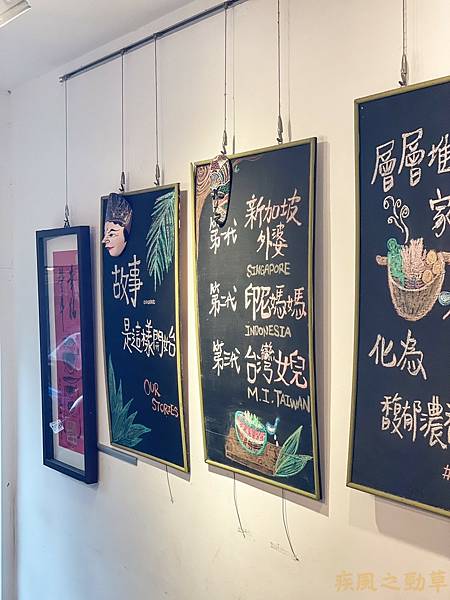 故事
是這樣開始
OUR
STORIES
第一代
新加坡
外婆
SINGAPORE
第二代
印尼媽媽
INDONESIA
第三代
台灣女兒
M.I.TAIWAN
層層堆
家
化為
馥郁濃
#
疾風之勁草